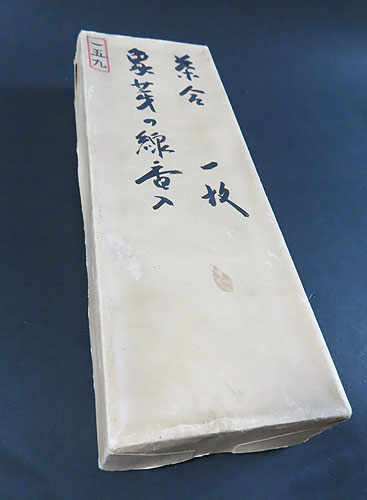 茶合 一枚
象芽の線香入
二五九